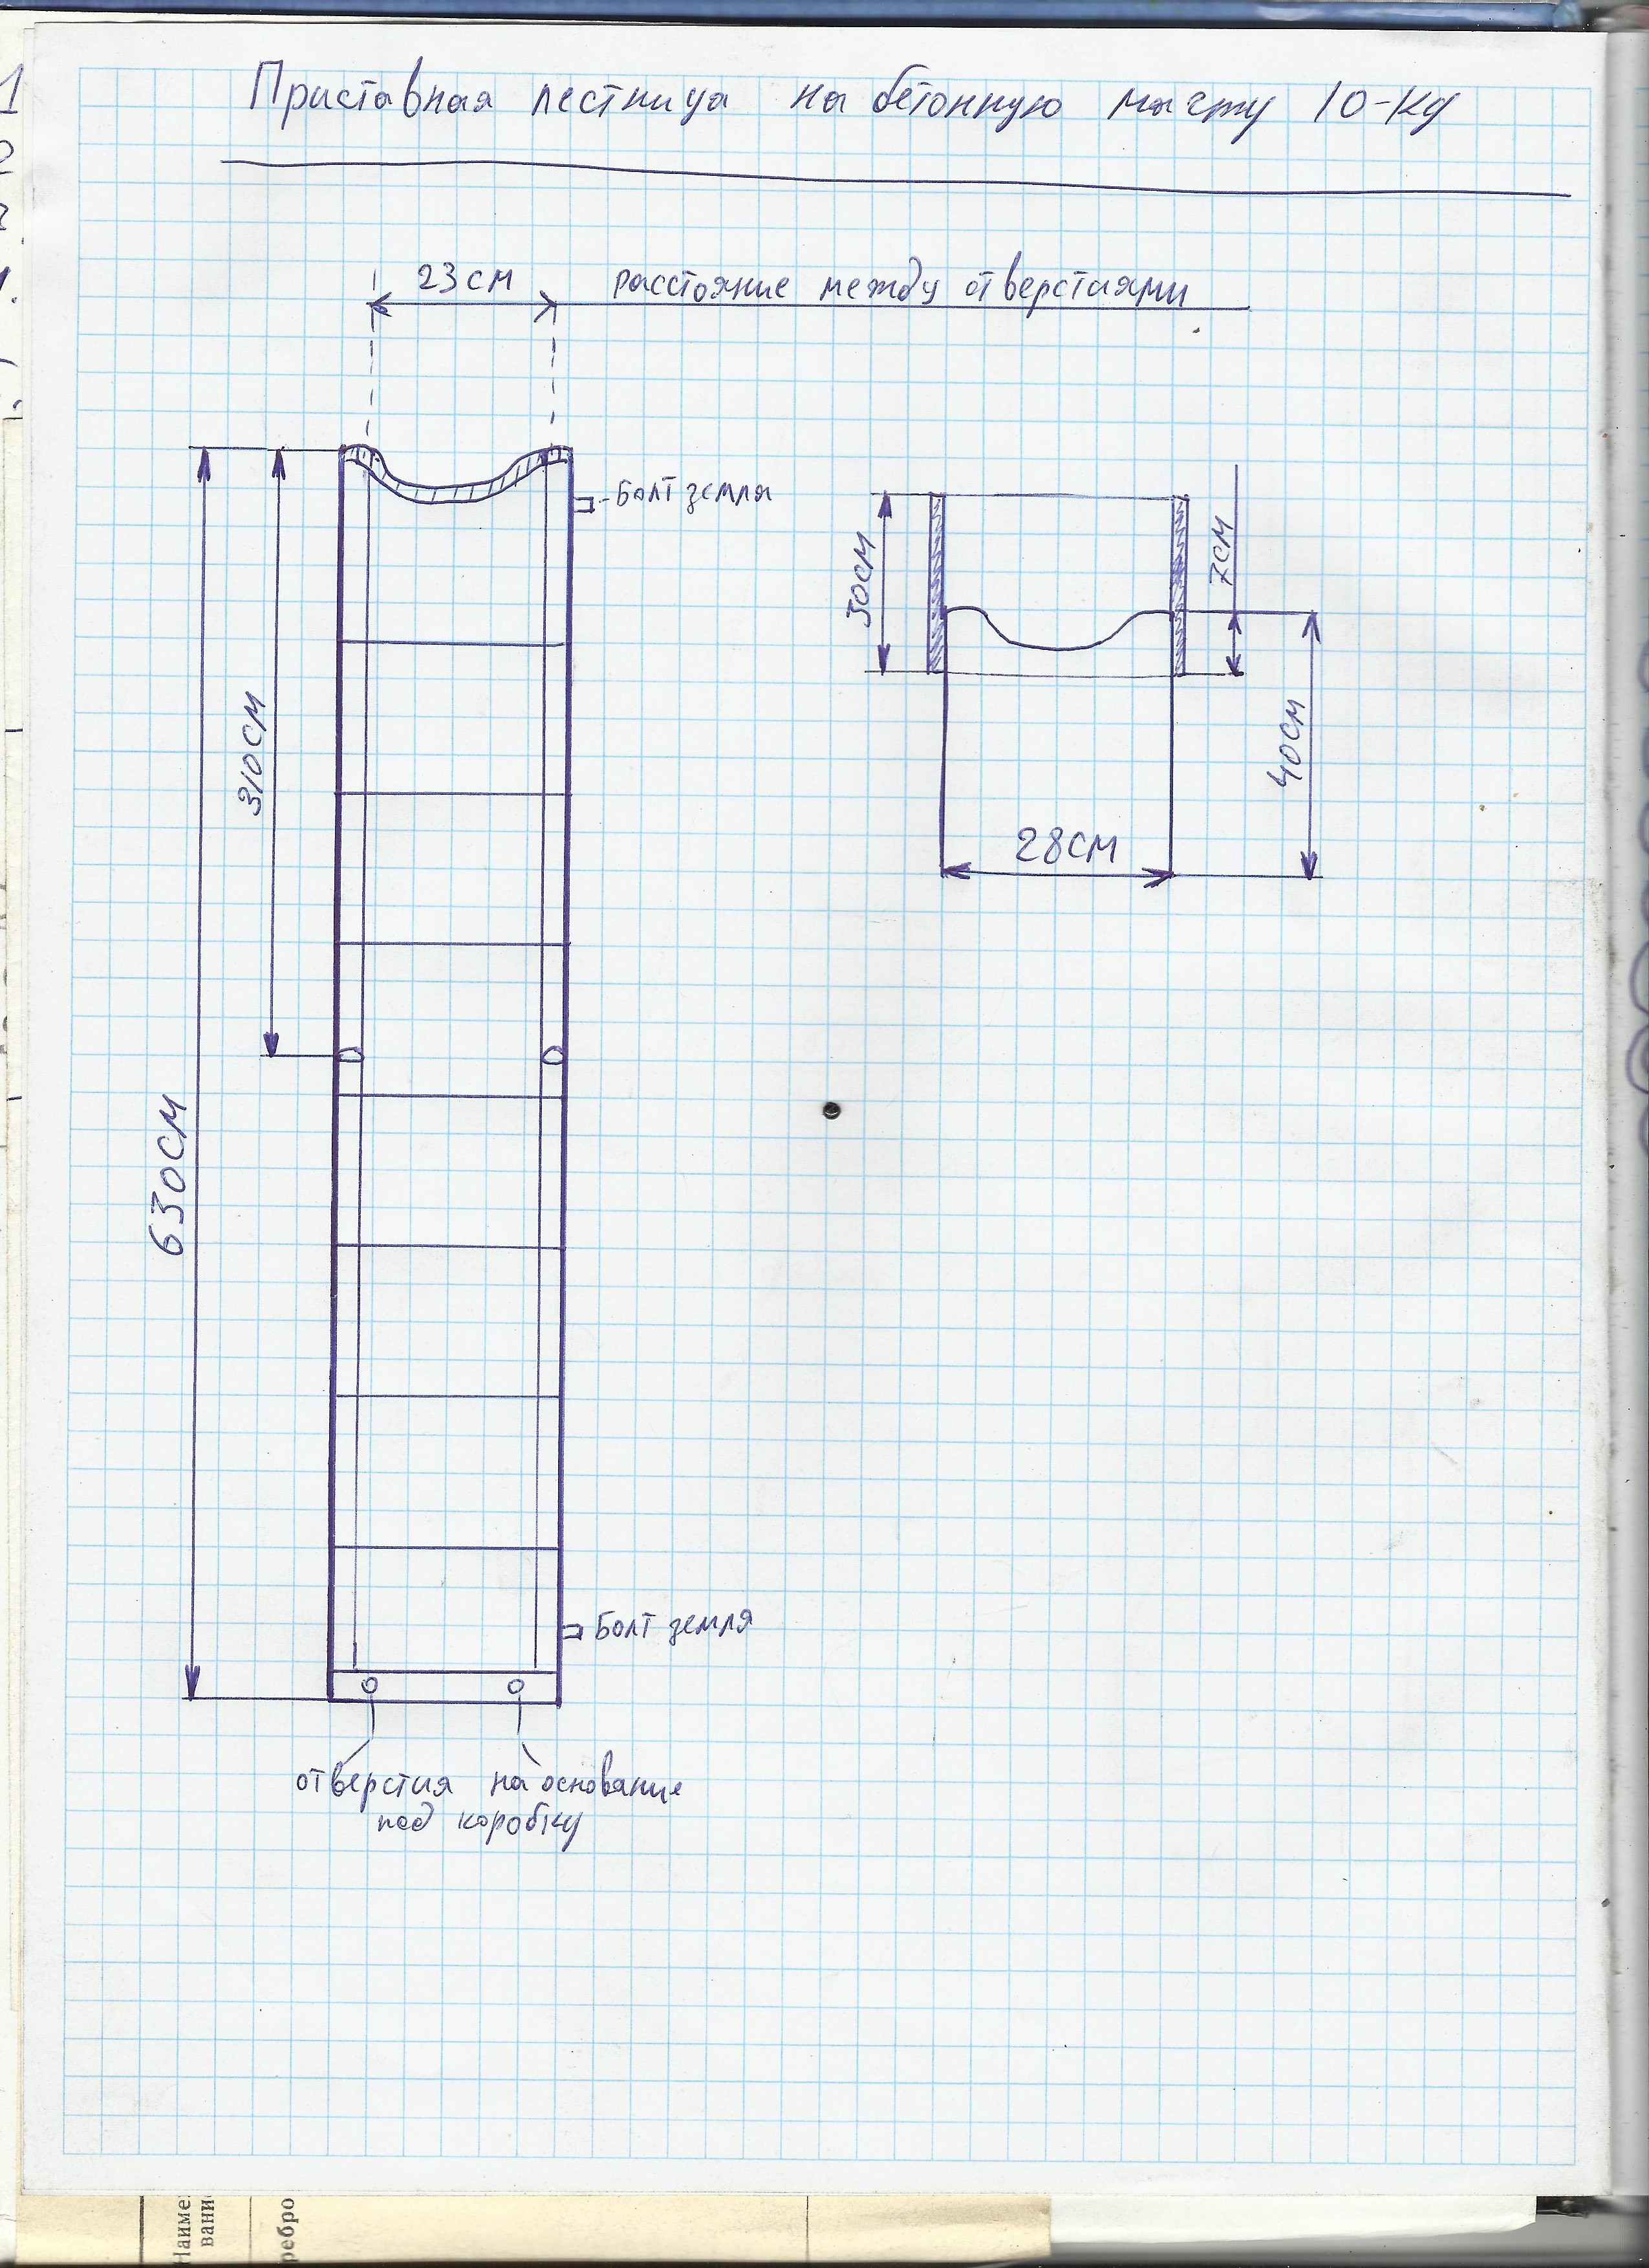 Приставная лестница на бетонную мачту 10-КД
23см расстояние между отверстиями
-Болт земля
50см
7см
310см
40см
28см
630см
Болт земля
отверстия на основание
под коробку
Наиме
вани
ребро